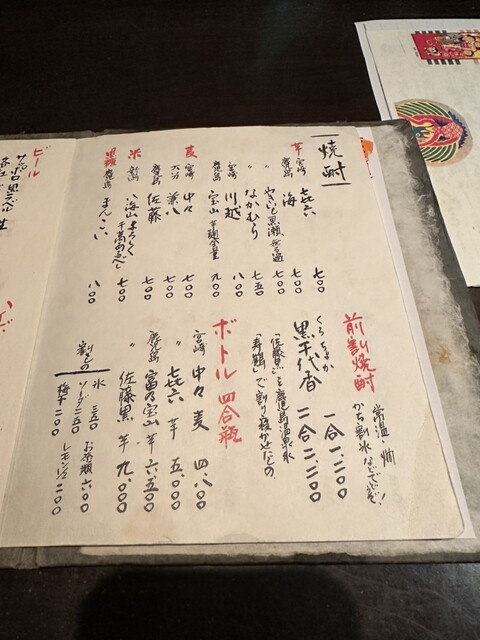 焼酎
芋
宮崎 七七六 七〇〇
鹿児島 海 七〇〇
〃 やきいも黒瀬
〃 なかむら 七五〇
宮崎 川越 八〇〇
鹿児島 宝山 芋麹全量 九〇〇
麦
宮崎 中々 七〇〇
大分 兼八 七〇〇
鹿児島 佐藤 七〇〇
米
八海山 七〇〇
黒糖
鹿児島 まんこい 八〇〇
前割焼酎
常温・燗
かち割氷などでどうぞ!
くろぢょか
黒千代香 一合 一、二〇〇
二合 二、二〇〇
「佐藤黒」を鹿児島温泉水
「寿鶴」で割り寝かせたもの
ボトル 四合瓶
宮崎 中々 麦 四、八〇〇
〃 七七六 芋 五、〇〇〇
鹿児島 富乃宝山 芋 六、五〇〇
〃 佐藤黒 芋 九、〇〇〇
割もの
氷 三五〇 お茶類 六〇〇
ソーダ 二五〇
梅干 二〇〇 レモン1/2 二〇〇
ビール
サッポロ黒ラベル 生